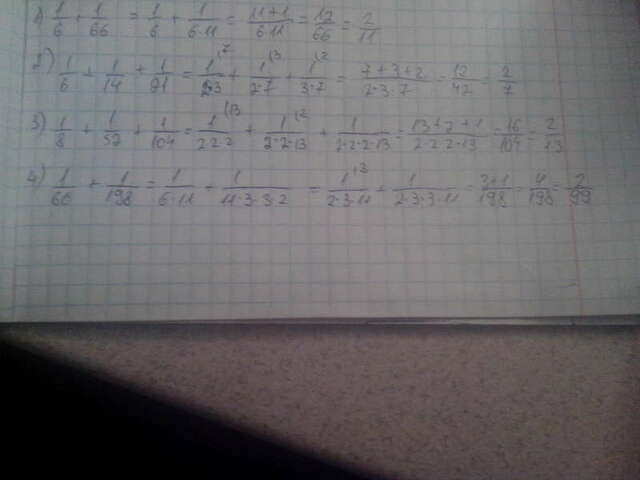 1) 1/6 + 1/66 = 1/6 + 1/6·11 = 11+1/6·11 = 12/66 = 2/11
2) 1/6 + 1/14 + 1/21 = 1/2·3 + 1/2·7 + 1/3·7 = 7+3+2/2·3·7 = 12/42 = 2/7
3) 1/8 + 1/52 + 1/104 = 1/2·2·2 + 1/2·2·13 + 1/2·2·2·13 = 13+2+1/2·2·2·13 = 16/104 = 2/13
4) 1/66 + 1/198 = 1/6·11 + 1/11·3·3·2 = 1/2·3·11 + 1/2·3·3·11 = 3+1/198 = 4/198 = 2/99